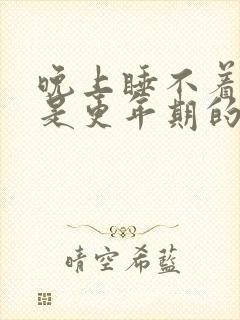 晚上睡不着
是更年期的
晴空希藍